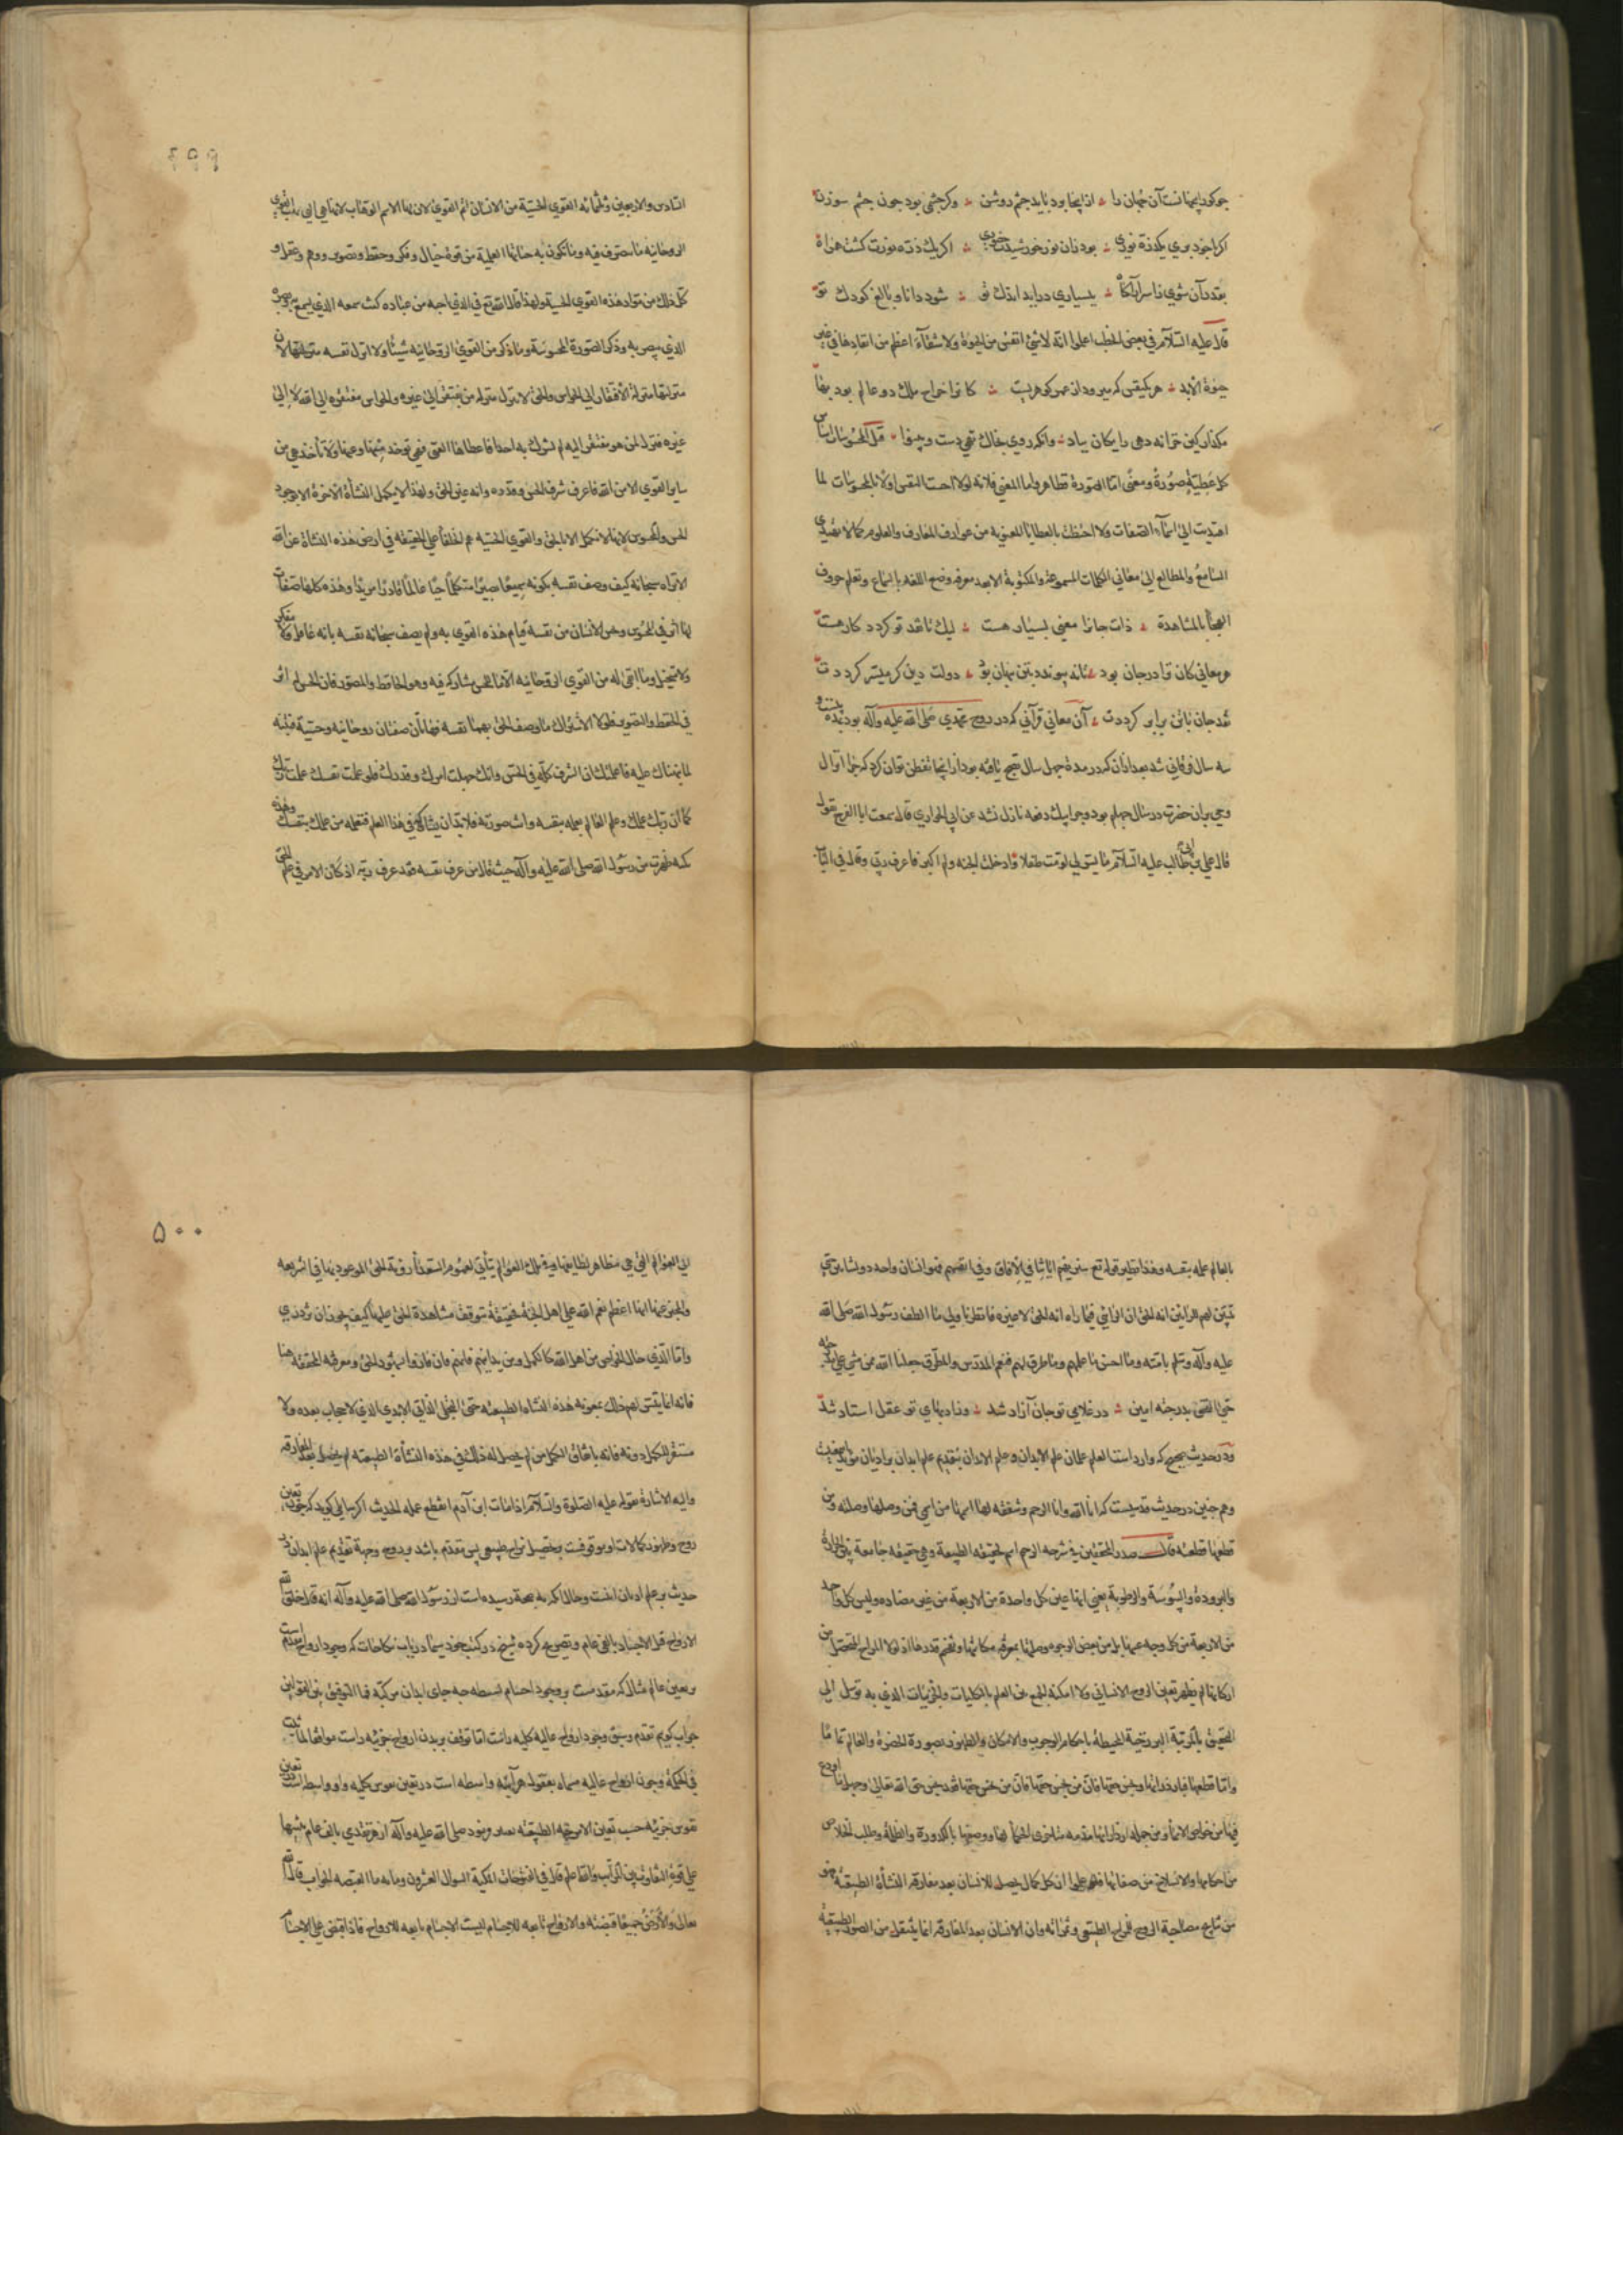 جو کوراینجانست آن جهان را ؞ از اینجا بود باید چشم روشن ؞ وکرچشمی بود چون چشم سوزن
اکر باخود بری یکذره نوری ؞ بود زان نور خورشیدت حضوری ؞ اکر یک ذره نورت کشت همراه
بقدر آن شوی ؞ بسیاری درآید اندک تو ؞ شود دانا و بالغ کودک تو
قال علیه السلام فی بعض الخطب اعلموا انه لا شیء انفس من الحیوة ولا شقاء اعظم من انفادها فی غیر
حیوة الابد ؞ هر یکنفس که میرود از عمر کوهریست ؞ کانرا خراج ملک دو عالم بود بها
مکذار کین خزانه دهی رایکان بباد ؞ وانکه روی بخاک تهی دست و بینوا ؞ قال
کل عطیة صورة ومعنی اما الصورة فظاهر واما المعنی فلانه لولا احست النفس اولا بالمحسوسات لما
اهتدیت الی اسماء الصفات ولا احتظت بالعطایا المعنویه من عوارف المعارف والعلوم کما لا یهتدی
السامع والمطالع الی معانی الکلمات المسموعة والمکتوبة الا بعد معرفة وضع اللغه بالسماع وتعلم حروف
الهجا بالمشاهدة ؞ ذات جانرا معنی بسیار هست ؞ لیک تا نقد تو کردد کار هست
هر معانی کان ترا در جان بود ؞ تا نه پیوندد بتن پنهان بود ؞ دولت دین کر میسر کرددت
نقد جان با تن برابر کرددت ؞ آن معانی قرآنی که در روح محمدی صلی الله علیه وآله بود بیست و
سه سال فرقانی شد بعد از آن که در مدة چهل سال نضج یافته بود از اینجا تفطن توان کرد که چرا انزال
وحی بران حضرت در سال چهلم بود و چرا یک دفعه نازل نشد عن ابی الحواری قال سمعت ابا الفرج یقول
قال علی بن ابی طالب علیه السلام ما یسرنی لو مت طفلا وادخلت الجنه ولم اکبر فاعرف ربی وقال فی الباب
۴۹۹
السادس والاربعین وثلثمائه القوی الحسیة من الانسان اتم القوی لان لها الاسم الوهاب لانها هی التی تهب للقوی
الروحانیه ما تتصرف فیه وما تکون به حیاتها العلمیة من قوة خیال وفکر وحفظ وتصویر ووهم وعقل و
کل ذلک من مواد هذه القوی الحسیة ولهذا قال الله تع فی الذی احبه من عباده کنت سمعه الذی یسمع به وبصره
الذی یبصر به وذکر الصورة المحسوسة وما ذکر من القوی الروحانیه شیئا ولا انزل نفسه منزلتها لان
منزلتها منزلة الافتقار الی الحواس والحق لا ینزل منزلة من یفتقر الی غیره والحواس مفتقره الی الله لا الی
غیره فنزل لمن هو مفتقر الیه لم یشرک به احدا فاعطاها الغنی فهی تؤخذ منها وعنها ولا تأخذ هی من
سایر القوی الا من الله فاعرف شرف الحس وقدره وانه عین الحق ولهذا لا یکمل النشأة الاخرة الا بوجود
الحس والمحسوس لانها لا تکمل الا بالحق والقوی الحسیه هم الخلفاء علی الحقیقه فی ارض هذه النشاة عن الله
الا تراه سبحانه کیف وصف نفسه بکونه سمیعا بصیرا متکلما حیا عالما قادرا مریدا وهذه کلها صفات
لها اثر فی المحسوس ویحس الانسان من نفسه بقیام هذه القوی به ولم یصف سبحانه نفسه بانه عاقل ولا مفکر
ولا متخیل وما ابقی له من القوی الروحانیه الا ما للحس مشارکه فیه وهو الحافظ والمصور فان الحس له اثر
فی الحفظ والتصویر فلولا الاشتراک ما وصف الحق بهما نفسه فهاتان صفتان روحانیه وحسیة فتنبه
لما نبهتک علیه فاعلمتک ان الشرف کله فی الحس وانک جهلت امرک وقدرک فلو علمت نفسک علمت ربک
کما ان ربک علمک وعلم العالم بعلمه بنفسه وانت صورته فلا بد ان تشارکه فی هذا العلم فتعلمه من علمک بنفسک وهذه
نکته ظهرت من رسول الله صلی الله علیه وآله حیث قال من عرف نفسه فقد عرف ربه اذ کان الامر فی علم الحق
بالعالم علمه بنفسه وهذا نظیر قوله تع سنریهم آیاتنا فی الآفاق وفی انفسهم فهو انسان واحد ذو نشاتین حتی
تبین لهم للرایین انه الحق ان الرائی فیما راه انه الحق لا غیره فانظر یا ولی ما الطف رسول الله صلی الله
علیه وآله وسلم بامته وما احسن ما علمهم وما طرق لهم فنعم المدرس والمطرق جعلنا الله ممن مشی علی مدرجته
حتی التحق بدرجته امین ؞ در غلامی تو جان آزاد شد ؞ وز ادبهای تو عقل استاد شد
ودر حدیث صحیح که وارد است العلم علمان علم الابدان وعلم الادیان بتقدیم علم ابدان بر ادیان
وهم چنین در حدیث قدسیست که انا الله وانا الرحمن وشققت لها اسما من اسمی فمن وصلها وصلته ومن
قطعها قطعته قال صدر المحققین فی شرحه الرحم اسم لحقیقه الطبیعة وهی حقیقه جامعة بین الحرارة
والبرودة والیبوسة والرطوبة یعنی انها عین کل واحدة من الاربعة من غیر مضادة ولیس کل واحد
من الاربعة من کل وجه عینها بل من بعض الوجوه وصلتها بمعرفة مکانتها وتفخیم قدرها اذ لولا المزاج المتحصل من
ارکانها لم یظهر تعین الروح الانسانی ولا امکنه الجمع بین العلم بالکلیات والجزئیات الذی به توسل الی
التحقق بالمرتبة البرزخیة المحیطة باحکام الوجوب والامکان والظهور بصورة الحضرة والعالم تماما
واما قطعها فبازدرائها وبخس حقها فان من بخس حقها فقد بخس حق الله تعالی وجهل ما اودع
فیها من خواص الاسماء ومن جمله ازدرائها مذمه متاخری الحکماء لها ووصفها بالکدورة والظلمة وطلب الخلاص
من احکامها والانسلاخ من صفاتها فلو علموا ان کل کمال یحصل للانسان بعد مفارقة النشأة الطبیعیة فهو
من نتایج مصاحبة الروح للمزاج الطبیعی وثمراته وان الانسان بعد المفارقة انما ینتقل من الصور الطبیعیة
۵۰۰
الی العوالم التی هی مظاهر لطایفها وفی تلک العوالم یتأتی لعموم السعداء رؤیة الحق الموعود بها فی الشریعه
والمخبر عنها انها اعظم نعم الله علی اهل الجنة فحقیقة تتوقف مشاهدة الحق علیها کیف یجوز ان تزدری
واما الذی حال الخواص من اهل الله کالکمل ومن یدانیهم فانهم وان فازوا بشهود الحق ومعرفته المحققه هنا
فانه انما تیسر لهم ذلک بمعونة هذه النشاة الطبیعیه حتی التجلی الذاتی الابدی الذی لا حجاب بعده ولا
مستقر للکمل دونه فانه باتفاق الکمل من لم یحصل له ذلک فی هذه النشأة الطبیعیة لم یحصل له بعد المفارقه
والیه الاشارة بقوله علیه الصلوة والسلام اذا مات ابن آدم انقطع عمله الحدیث اکر سایلی کوید که چون تعین
روح وظهور کمالات او موقوفست بتحصیل مزاج طبیعی پس مقدم باشد بر روح وجهة تقدیم علم ابدان در
حدیث بر علم ادیان اینست وحال آنکه به صحة رسیده است از رسول الله صلی الله علیه وآله انه قال خلق الله
الارواح قبل الاجساد بالفی عام وتصریح کرده شیخ در کتب خود سیما در باب نکاحات که وجود ارواح مقدم است
وتعین عالم مثال که مقدمست بر وجود اجسام بسیطه چه جای ابدان مرکبه فما التوفیق بین القولین
جواب کویم تقدم وسبق وجود ارواح عالیه کلیه راست اما توقف بر بدن ارواح جزئیه راست موافقا لما ثبت
فی الحکمة وچون ارواح عالیه مسماه بعقول هر آینه واسطه است در تعین نفوس کلیه واو واسطه است در تعین
نفوس جزئیه حسب تعین الامزجه الطبیعیه
علی قوة التفاوت بین المراتب والله اعلم قال فی الفتوحات المکیة السوال العشرون ومأته ما القبضه الجواب قال الله
تعالی والارض جمیعا قبضته والارواح تابعه للاجسام لیست الاجسام تابعه للارواح فاذا قبض علی الاجسام